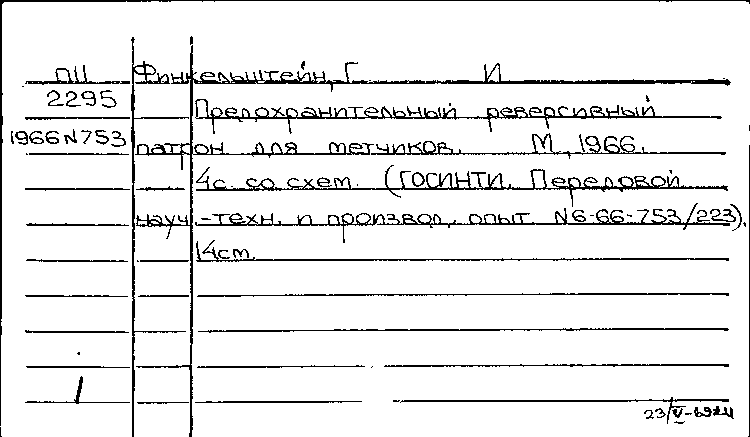 П11 Финкельштейн, Г. И
2295 Предохранительный реверсивный
1966N753 патрон для метчиков. М., 1966.
4с. со схем. (ГОСИНТИ. Передовой
науч.-техн. и произвол. опыт N6-66-753/223).
14см.
1
23/V-69